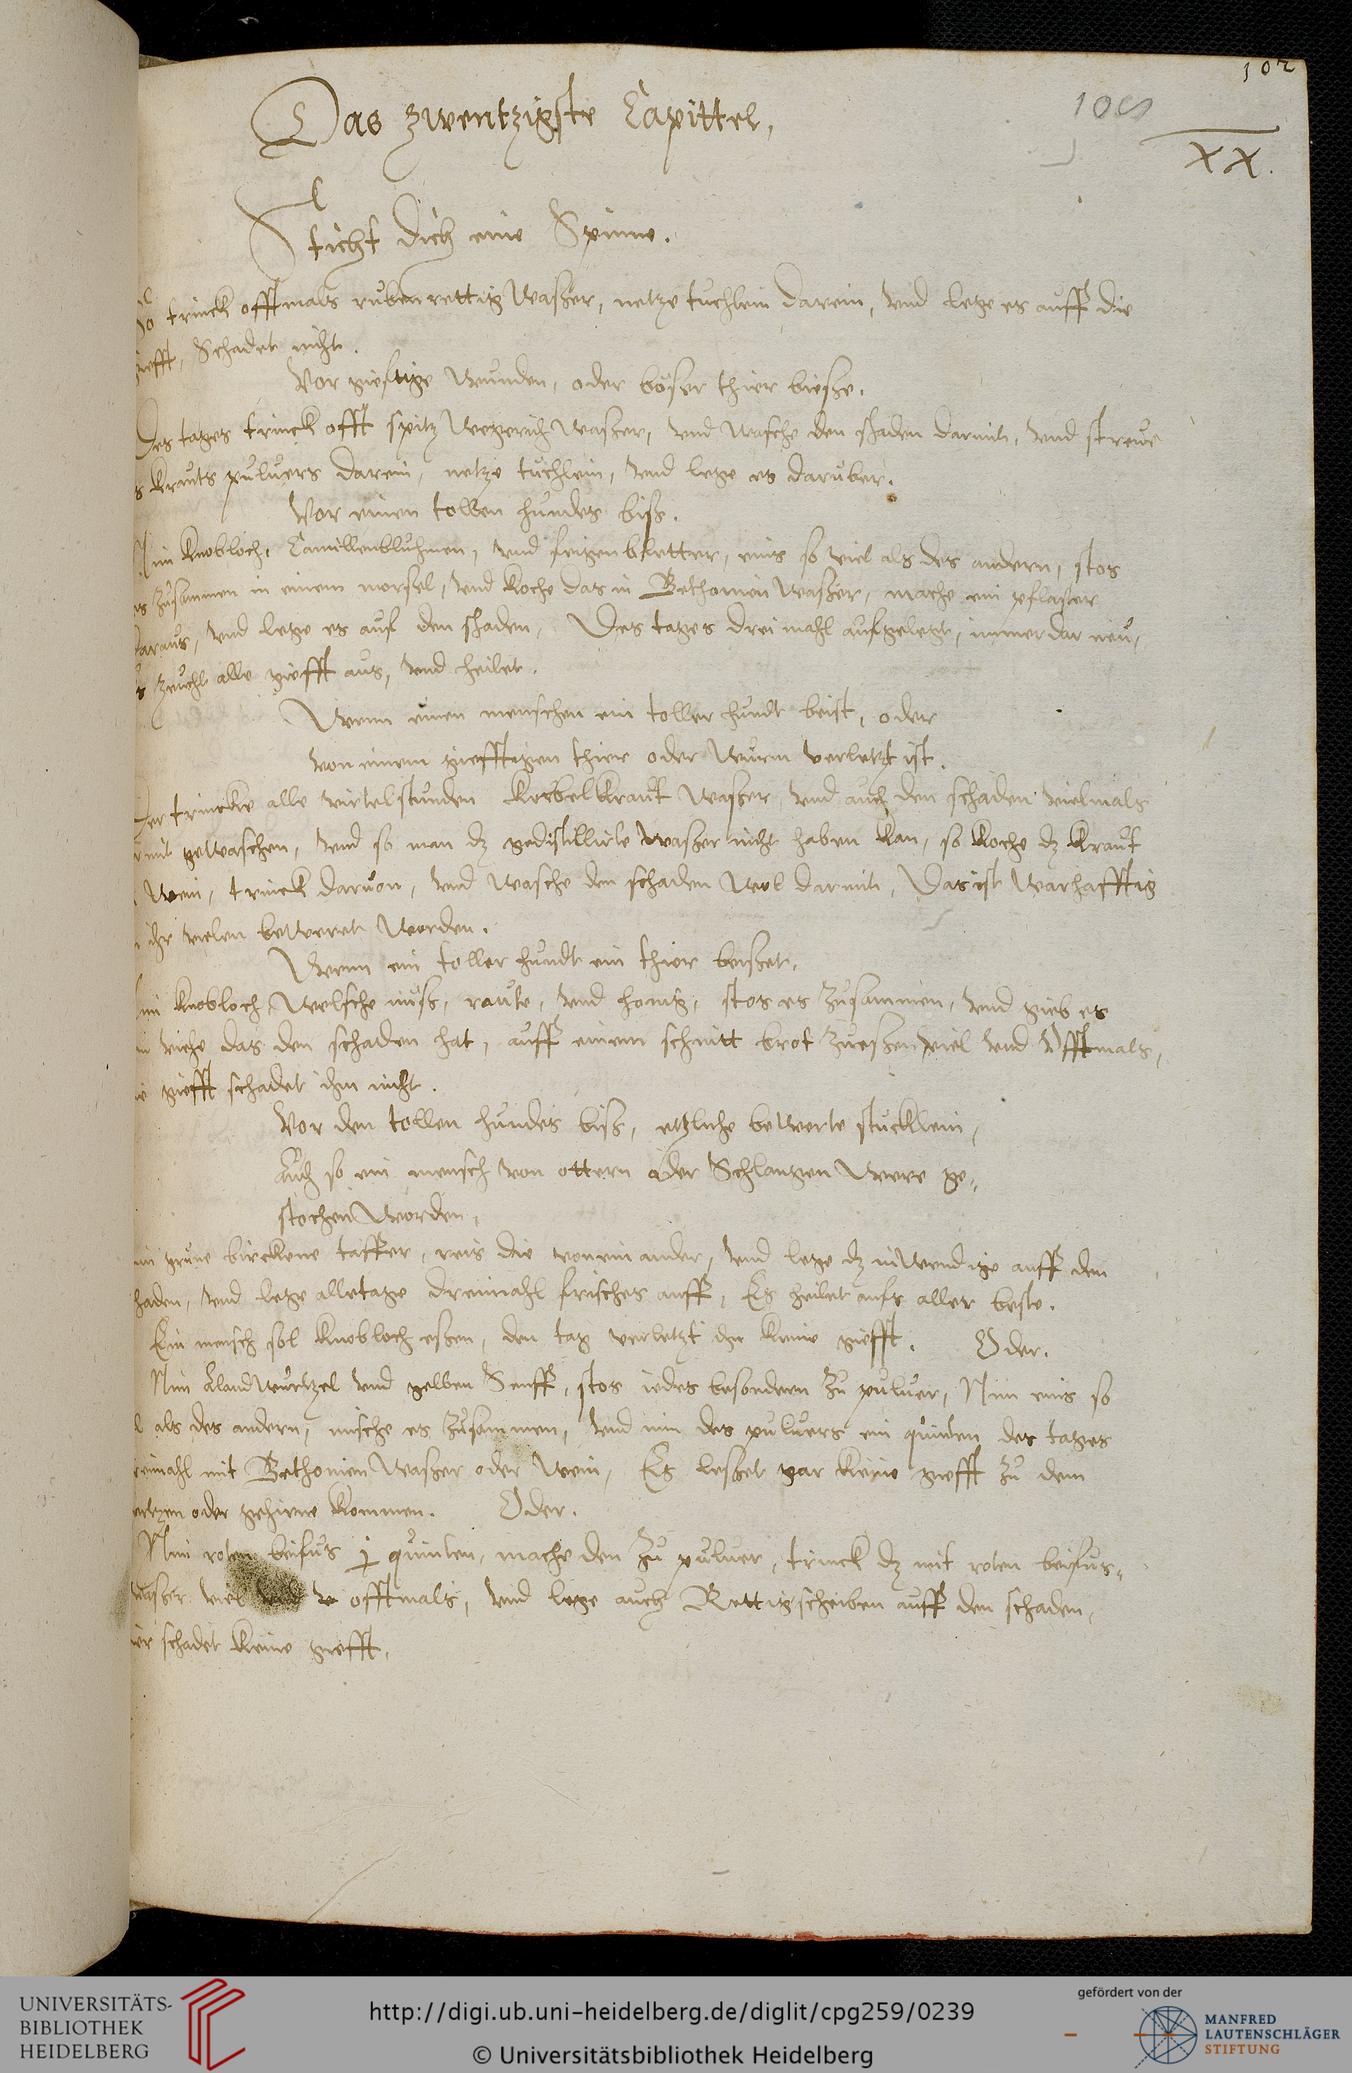 102
106
XX.
Das zwentzigste Capittel,
Sticht dich eine Spinne.
So trinck offtmals rubenrettig Waßer, netze tuchlein darein, vnd lege es auff die
giefft, Schadet nicht.
Vor gieftige Wunden, oder böser thier bieße.
Des tages trinck offt spitz Wegerich Waßer, vnd Wasche den schaden darmit, vnd strewe
s krauts puluers darein, netze tuchlein, vnd lege es daruber.
Vor einen tollen hundes biß.
Nim knobloch, Camillenbluhmen, vnd feigenbletter, eins so viel als des andern, stos
es zusammen in einem morsel, vnd koche das in Bethonien Waßer, mache ein pflaster
daraus, vnd lege es auf den schaden, Des tages dreimahl aufgelegt, immerdar neu,
s zeucht alle giefft aus, vnd heilet.
Wenn einen menschen ein toller hundt beist, oder
von einem giefftigen thier oder Wurm verletzt ist.
Der trincke alle virtelstunden KorbelKraut Waßer, vnd auch den schaden vielmals
mit geWaschen, vnd so man dz gedistillirte Waßer nicht haben kan, so koche dz kraut
Wein, trinck daruon, vnd Wasche den schaden Wol darmit, Das ist Warhafftig
ihr vielen beWeret Worden.
Wenn ein toller hundt ein thier beißet.
Nim knobloch, Welsche nuß, raute, vnd honig, stos es zusammen, vnd gieb es
viehe das den schaden hat, auff einem schnitt brot zu eßen viel vnd offtmals,
giefft schadet ihm nicht.
Vor den tollen hundes biß, etzliche beWerte stucklein,
Auch so ein mensch von ottern oder Schlangen Were ge-
stochen Worden,
grune birckene, reis die von einander, vnd lege dz inWendige auff den
schaden, vnd lege alletage dreimahl frisches auff, Es heilet aufs aller beste.
Ein mensch sol knobloch eßen, den tag verletzt ihn keine giefft. Oder.
Nim AlandWurtzel vnd gelben Senff, stos iedes besondern zu puluer, Nim eins so
als des andern, mische es zusammen, vnd nim des puluers ein quinten des tages
dreimahl mit Bethonien Waßer oder Wein, Es leßet gar keine giefft zu dem
hertzen oder gehirne kommen. Oder.
Nim roten beifus j quinten, mache den zu puluer, trinck dz mit roten beifus-
waßer viel vnd offtmals, vnd lege auch Rettigscheiben auff den schaden,
schadet keine giefft.
UNIVERSITÄTS-
BIBLIOTHEK
HEIDELBERG
http://digi.ub.uni-heidelberg.de/diglit/cpg259/0239
© Universitätsbibliothek Heidelberg
gefördert von der
MANFRED
LAUTENSCHLÄGER
STIFTUNG